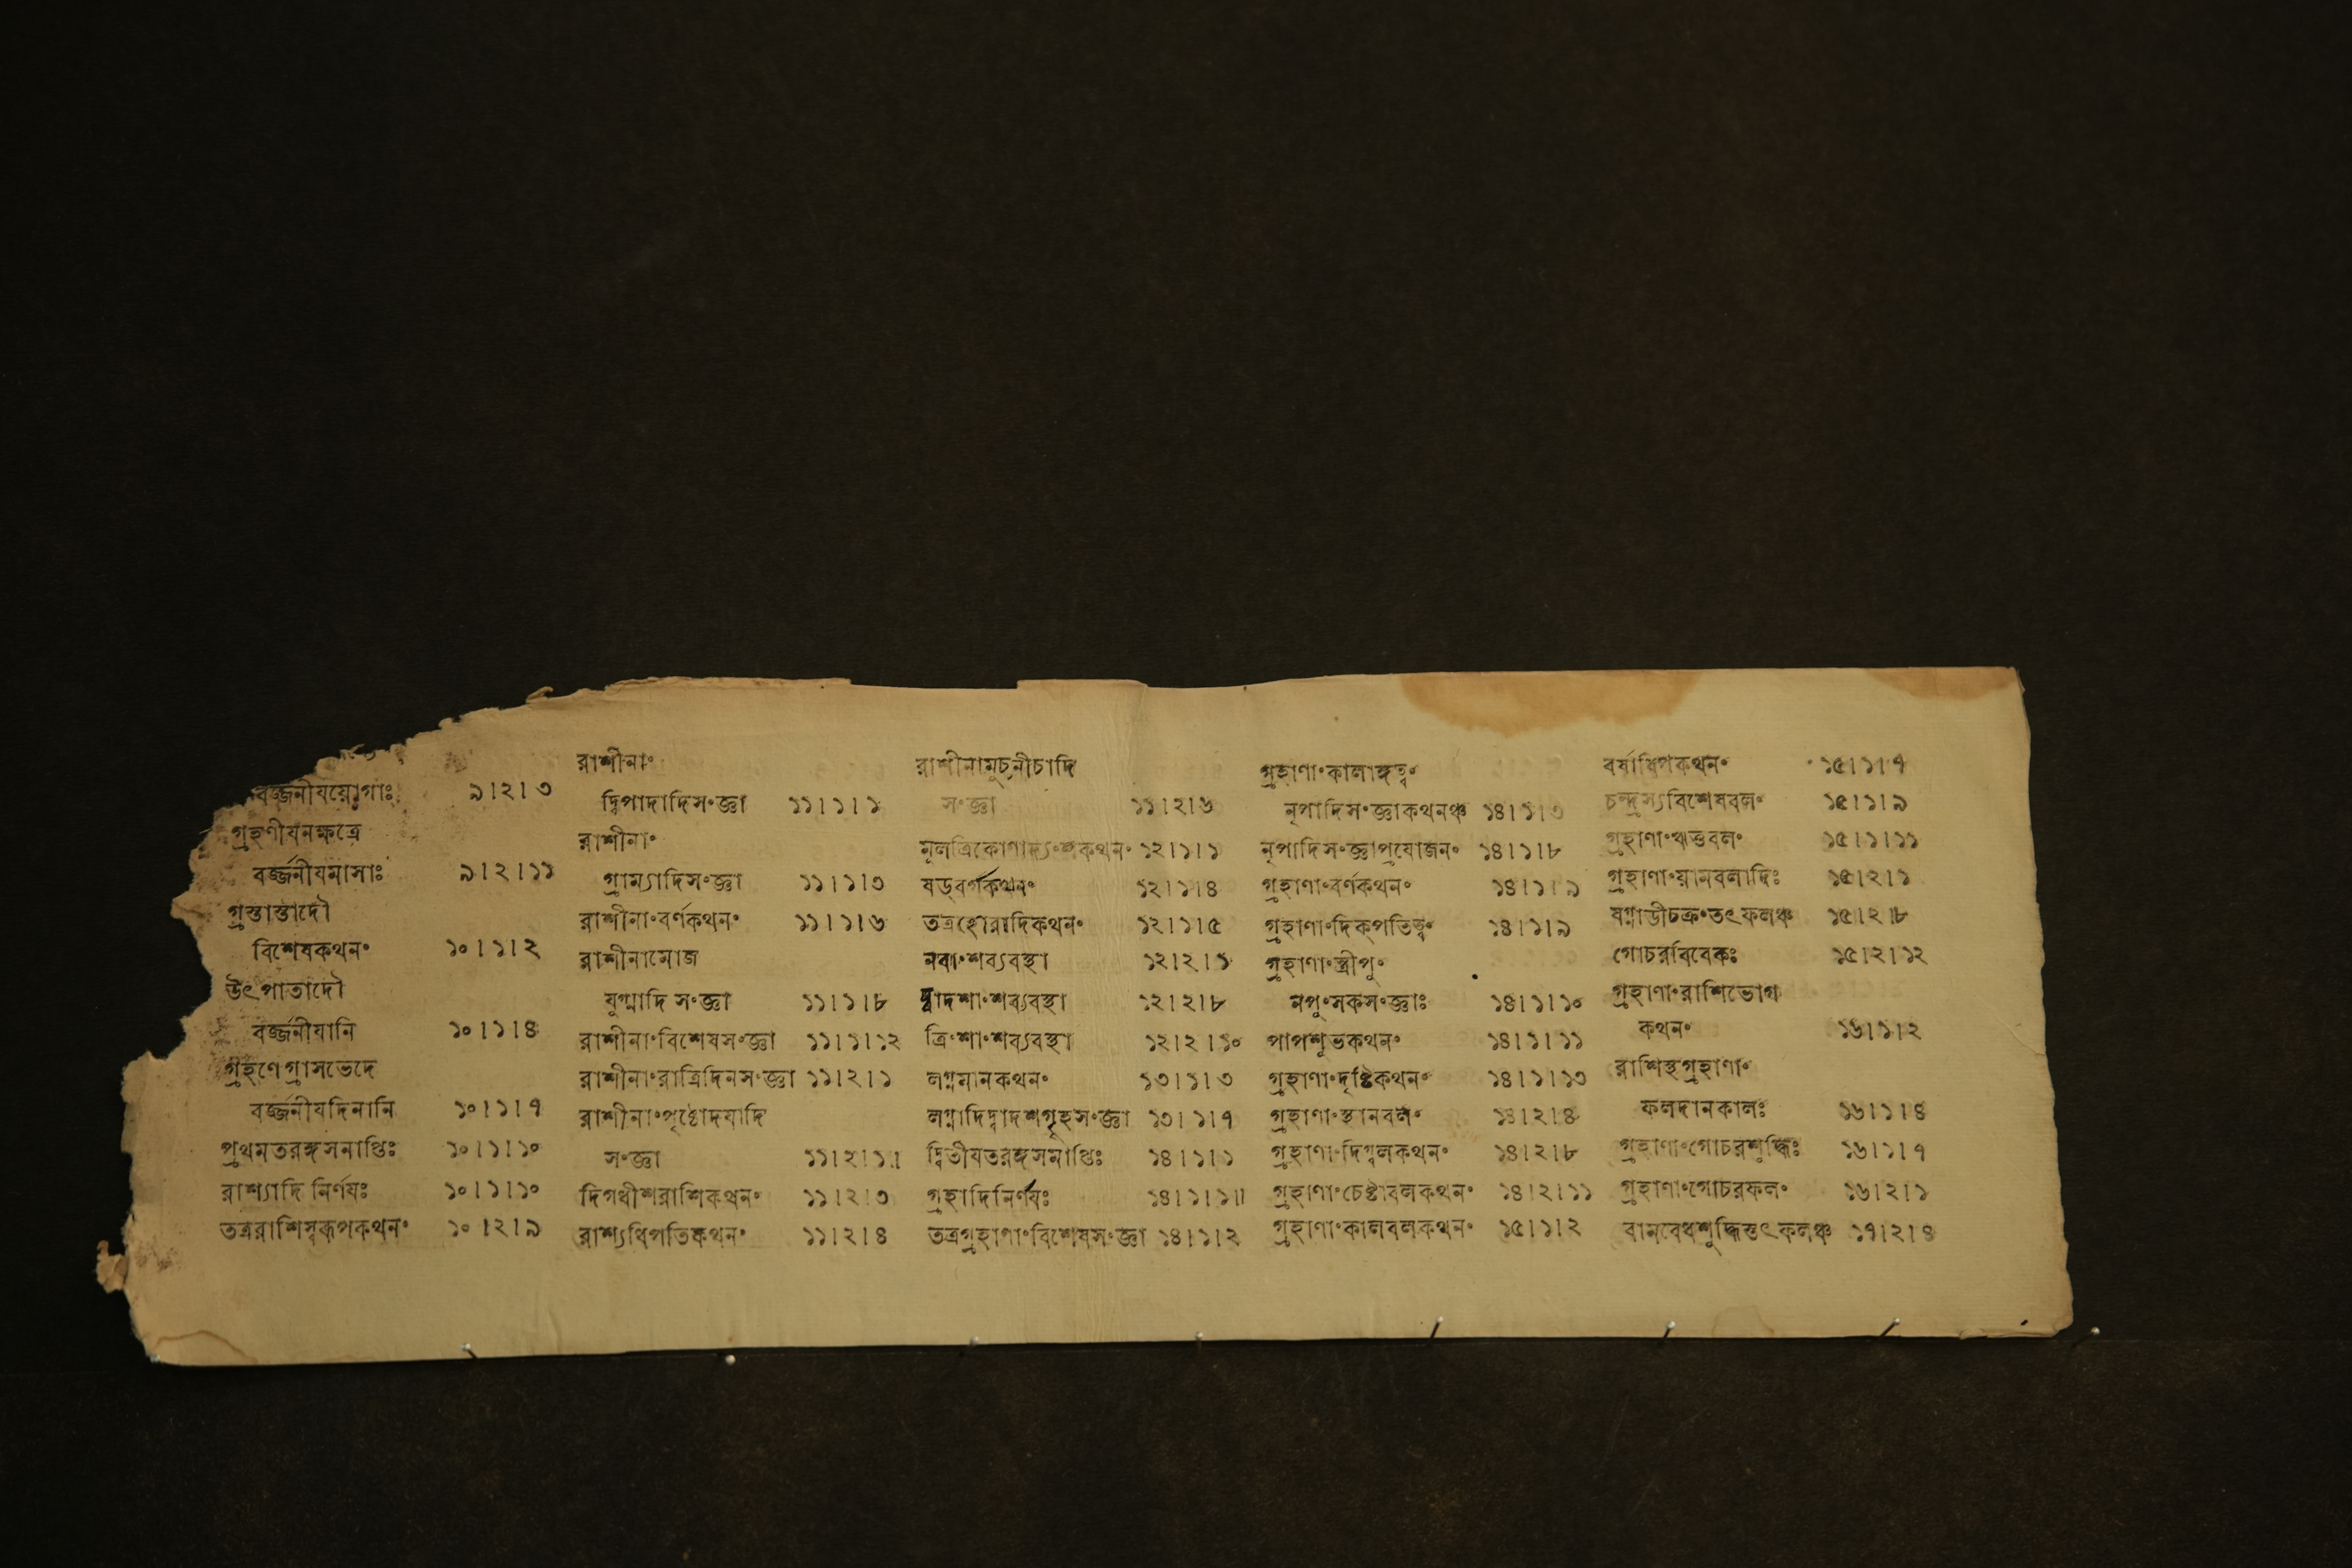 বর্জ্জনীযযোগাঃ ৯।২।৩
গ্রহণীযনক্ষত্রে
বর্জ্জনীযমাসাঃ ৯।২।১১
গ্রস্তাস্তাদৌ
বিশেষকথনং ১০।১।২
উৎপাতাদৌ
বর্জ্জনীযানি ১০।১।৪
গ্রহণেগ্রাসভেদে
বর্জ্জনীযদিনানি ১০।১।৭
প্রথমতরঙ্গসমাপ্তিঃ ১০।১।১০
রাশ্যাদি নির্ণযঃ ১০।১।১০
তত্ররাশিস্বরূপকথনং ১০।২।৯
রাশীনাং
দ্বিপাদাদিসংজ্ঞা ১১।১।১
রাশীনাং
গ্রাম্যাদিসংজ্ঞা ১১।১।৩
রাশীনাংবর্ণকথনং ১১।১।৬
রাশীনামোজ
যুগ্মাদি সংজ্ঞা ১১।১।৮
রাশীনাংবিশেষসংজ্ঞা ১১।১।১২
রাশীনাংরাত্রিদিনসংজ্ঞা ১১।২।১
রাশীনাংপৃষ্ঠোদযাদি
সংজ্ঞা ১১।২।১
দিগধীশরাশিকথনং ১১।২।৩
রাশ্যধিপতিকথনং ১১।২।৪
রাশীনামুচ্চনীচাদি
সংজ্ঞা ১১।২।৬
মূলত্রিকোণাদ্যংশকথনং ১২।১।১
ষড্বর্গকথনং ১২।১।৪
তত্রহোরাদিকথনং ১২।১।৫
নবাংশব্যবস্থা ১২।২।১
দ্বাদশাংশব্যবস্থা ১২।২।৮
ত্রিংশাংশব্যবস্থা ১২।২।১০
লগ্নমানকথনং ১৩।১।৩
লগ্নাদিদ্বাদশগৃহসংজ্ঞা ১৩।১।৭
দ্বিতীযতরঙ্গসমাপ্তিঃ ১৪।১।১
গ্রহাদিনির্ণযঃ ১৪।১।১॥
তত্রগ্রহাণাংবিশেষসংজ্ঞা ১৪।১।২
গ্রহাণাংকালাঙ্গত্বং
নৃপাদিসংজ্ঞাকথনঞ্চ ১৪।১।৩
নৃপাদিসংজ্ঞাপ্রযোজনং ১৪।১।৮
গ্রহাণাংবর্ণকথনং ১৪।১।৯
গ্রহাণাংদিক্পতিত্বং ১৪।১।৯
গ্রহাণাংস্ত্রীপুং
নপুংসকসংজ্ঞাঃ ১৪।১।১০
পাপশুভকথনং ১৪।১।১১
গ্রহাণাংদৃষ্টিকথনং ১৪।১।১৩
গ্রহাণাংস্থানবলং ১৪।২।৪
গ্রহাণাংদিগ্বলকথনং ১৪।২।৮
গ্রহাণাংচেষ্টাবলকথনং ১৪।২।১১
গ্রহাণাংকালবলকথনং ১৫।১।২
বর্ষাধিপকথনং ১৫।১।৭
চন্দ্রস্যবিশেষবলং ১৫।১।৯
গ্রহাণাংঋত্তবলং ১৫।১।১১
গ্রহাণাংয়ানবলাদিঃ ১৫।২।১
ষণ্নাডীচক্রংতৎফলঞ্চ ১৫।২।৮
গোচরবিবেকঃ ১৫।২।১২
গ্রহাণাংরাশিভোগ
কথনং ১৬।১।২
রাশিস্থগ্রহাণাং
ফলদানকালঃ ১৬।১।৪
গ্রহাণাংগোচরশুদ্ধিঃ ১৬।১।৭
গ্রহাণাংগোচরফলং ১৬।২।১
বামবেধশুদ্ধিস্তৎফলঞ্চ ১৭।২।৪